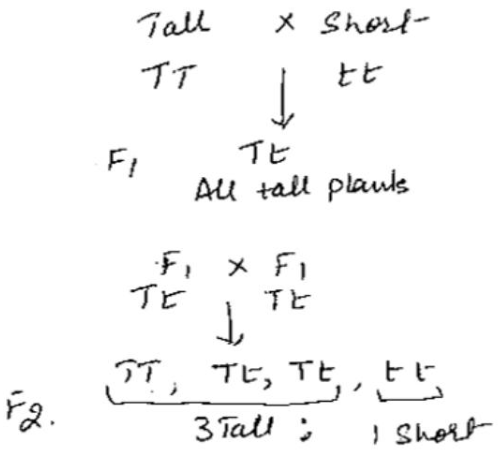 Tall × Short
TT tt
F1 Tt
All tall plants
F1 × F1
Tt Tt
TT, Tt, Tt, tt
F2. 3 Tall : 1 Short